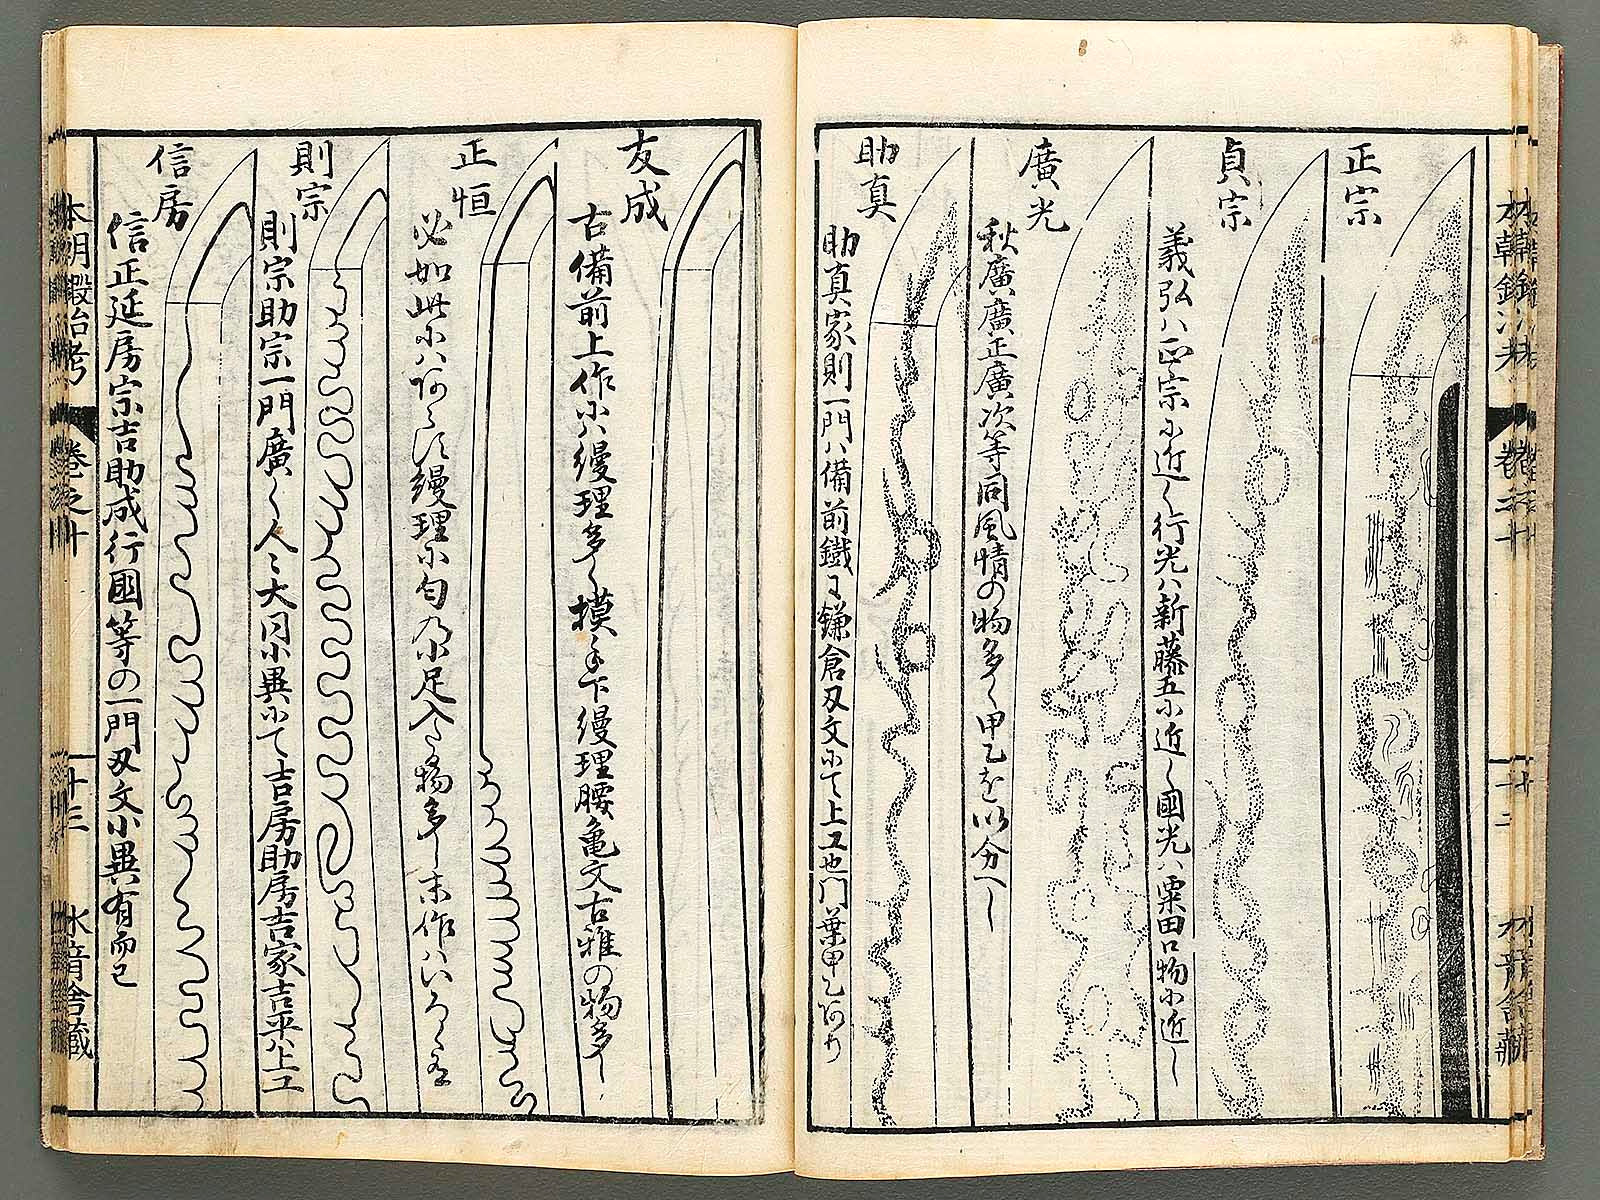 正宗
貞宗
義弘ハ正宗に近く行光ハ新藤五に近く國光ハ粟田口物に近し
廣光
秋廣廣正廣次等同風情の物多く甲乙を以分へし
助真
助真家則一門ハ備前鐵に鎌倉刃文にて上工也門葉甲乙あり
友成
古備前上作にハ縵理多く摸手下縵理腰亀文古雅の物多し
正恒
必如此にハあらす縵理に匂乃小足入たる物多し末作ハいろくあり
則宗
則宗助宗一門廣く人々大同小異にて吉房助房吉家吉平ハ上工
信房
信正延房宗吉助成行國等の一門刃文小異有而已
本朝鍛冶考
卷之十
十三
水音舎藏